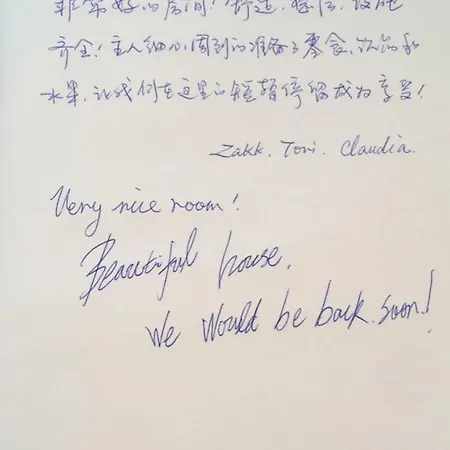 非常好的房间！舒适、整洁、设施
齐全！主人细心周到的准备了零食、饮品和
水果，让我们在这里的短暂停留成为享受！
Zakk. Toni. Claudia.
Very nice room!
Beautiful house.
We would be back soon!